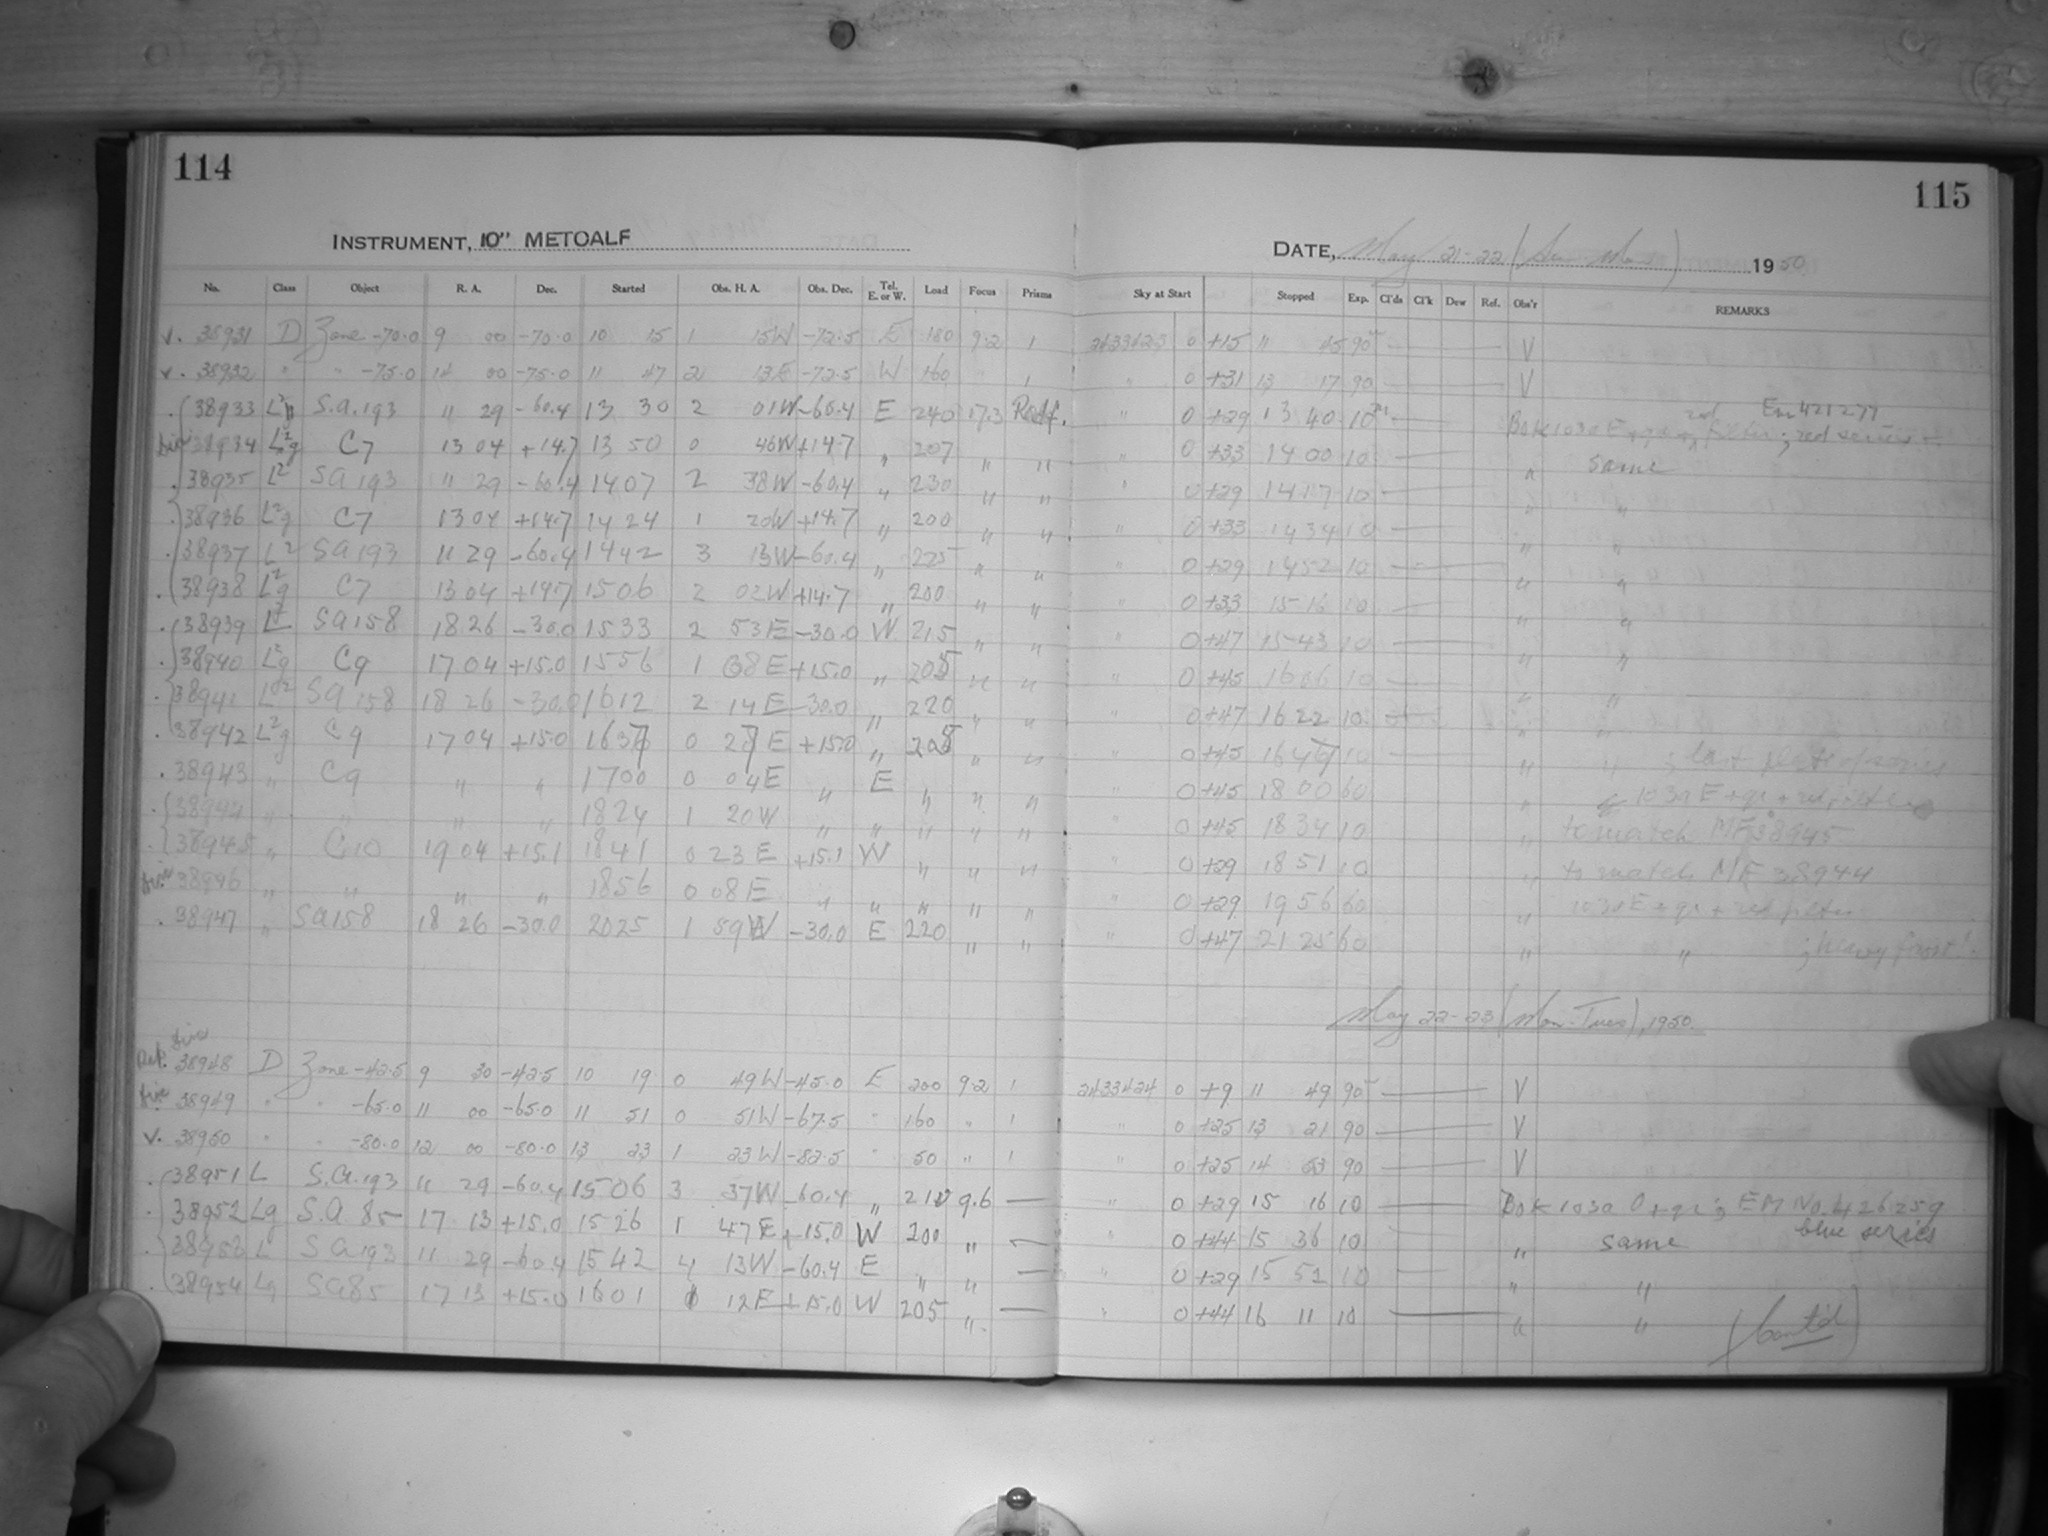 114
115
INSTRUMENT, 10" METCALF
DATE, May 21-22 (Sun-Mon) 1950
No. Class Object R. A. Dec. Started Obs. H. A. Obs. Dec. Tel. E. or W. Load Focus Prisms Sky at Start Stopped Exp. Cl'ds Cl'k Dew Ref. Obs'r REMARKS
v. 38931 D Zone -70.0 9 00 -70.0 10 15 1 15W -72.5 E 180 9.2 1 2433423 0 +15 11 45 90 V
v. 38932 " " -75.0 14 00 -75.0 11 47 2 13E -72.5 W 160 1 " 0 +31 13 17 90 V
38933 L² S.A.193 11 29 -60.4 13 30 2 01W -60.4 E 240 17.3 Redf. " 0 +29 13 40 10 Bok 103a E + + red filter; red series
38934 L²g C7 13 04 +14.7 13 50 0 46W +14.7 " 207 " " " 0 +33 14 00 10 " same
38935 L² SA193 11 29 -60.4 14 07 2 38W -60.4 " 230 " " " 0 +29 14 17 10 " "
38936 L²g C7 13 04 +14.7 14 24 1 20W +14.7 " 200 " " 0 +33 14 34 10 " "
38937 L² SA193 11 29 -60.4 14 42 3 13W -60.4 " 225 " " " 0 +29 14 52 10 " "
38938 L²g C7 13 04 +14.7 15 06 2 02W +14.7 " 200 " " " 0 +33 15 16 10 " "
38939 L² SA158 18 26 -30.0 15 33 2 53E -30.0 W 215 " " " 0 +47 15 43 10 " "
38940 L²g C9 17 04 +15.0 15 56 1 08E +15.0 " 205 " " " 0 +45 16 06 10 " "
38941 L² SA158 18 26 -30.0 16 12 2 14E -30.0 " 220 " " " 0 +47 16 22 10 " "
38942 L²g C9 17 04 +15.0 16 37 0 27E +15.0 " 205 " " " 0 +45 16 47 10 " " ; last plate of series
38943 " C9 " " 17 00 0 04E " E " " " " 0 +45 18 00 60 " 103a E + gr + red filter
38944 " " " " 18 24 1 20W " " " " " " 0 +45 18 34 10 " to match MF 38945
38945 " C10 19 04 +15.1 18 41 0 23E +15.1 W " " " " 0 +29 18 51 10 " to match MF 38944
38946 " " " " 18 56 0 08E " " " " " " 0 +29 19 56 60 " 103a E + gr + red filter
38947 " SA158 18 26 -30.0 20 25 1 59W -30.0 E 220 " " " 0 +47 21 25 60 " " ; heavy frost!
May 22-23 (Mon-Tues), 1950
38948 D Zone -42.5 9 30 -42.5 10 19 0 49W -45.0 E 200 9.2 1 2433424 0 +9 11 49 90 V
38949 " " -65.0 11 00 -65.0 11 51 0 51W -67.5 " 160 " 1 " 0 +25 13 21 90 V
v. 38950 " " -80.0 12 00 -80.0 13 23 1 23W -82.5 " 50 " 1 " 0 +25 14 53 90 V
38951 L S.A.193 11 29 -60.4 15 06 3 37W -60.4 " 210 9.6 — " 0 +29 15 16 10 Bok 103a O + gr; EM No. 426259
blue series
38952 Lg S.A. 85 17 13 +15.0 15 26 1 47E +15.0 W 200 " — " 0 +44 15 36 10 " same
38953 L SA193 11 29 -60.4 15 42 4 13W -60.4 E " " — " 0 +29 15 52 10 " "
38954 Lg SA85 17 13 +15.0 16 01 1 12E +15.0 W 205 " — " 0 +44 16 11 10 " "
(Cont'd)